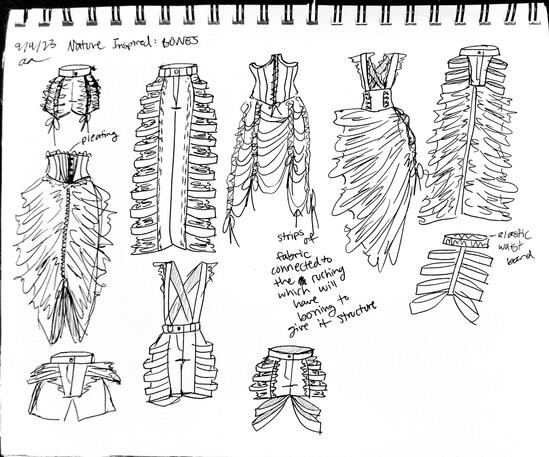 9/4/23 Nature Inspired: BONES
pleating
strips of
fabric
connected to
the ruching
which will
have
boning to
give it structure
elastic
waist
band